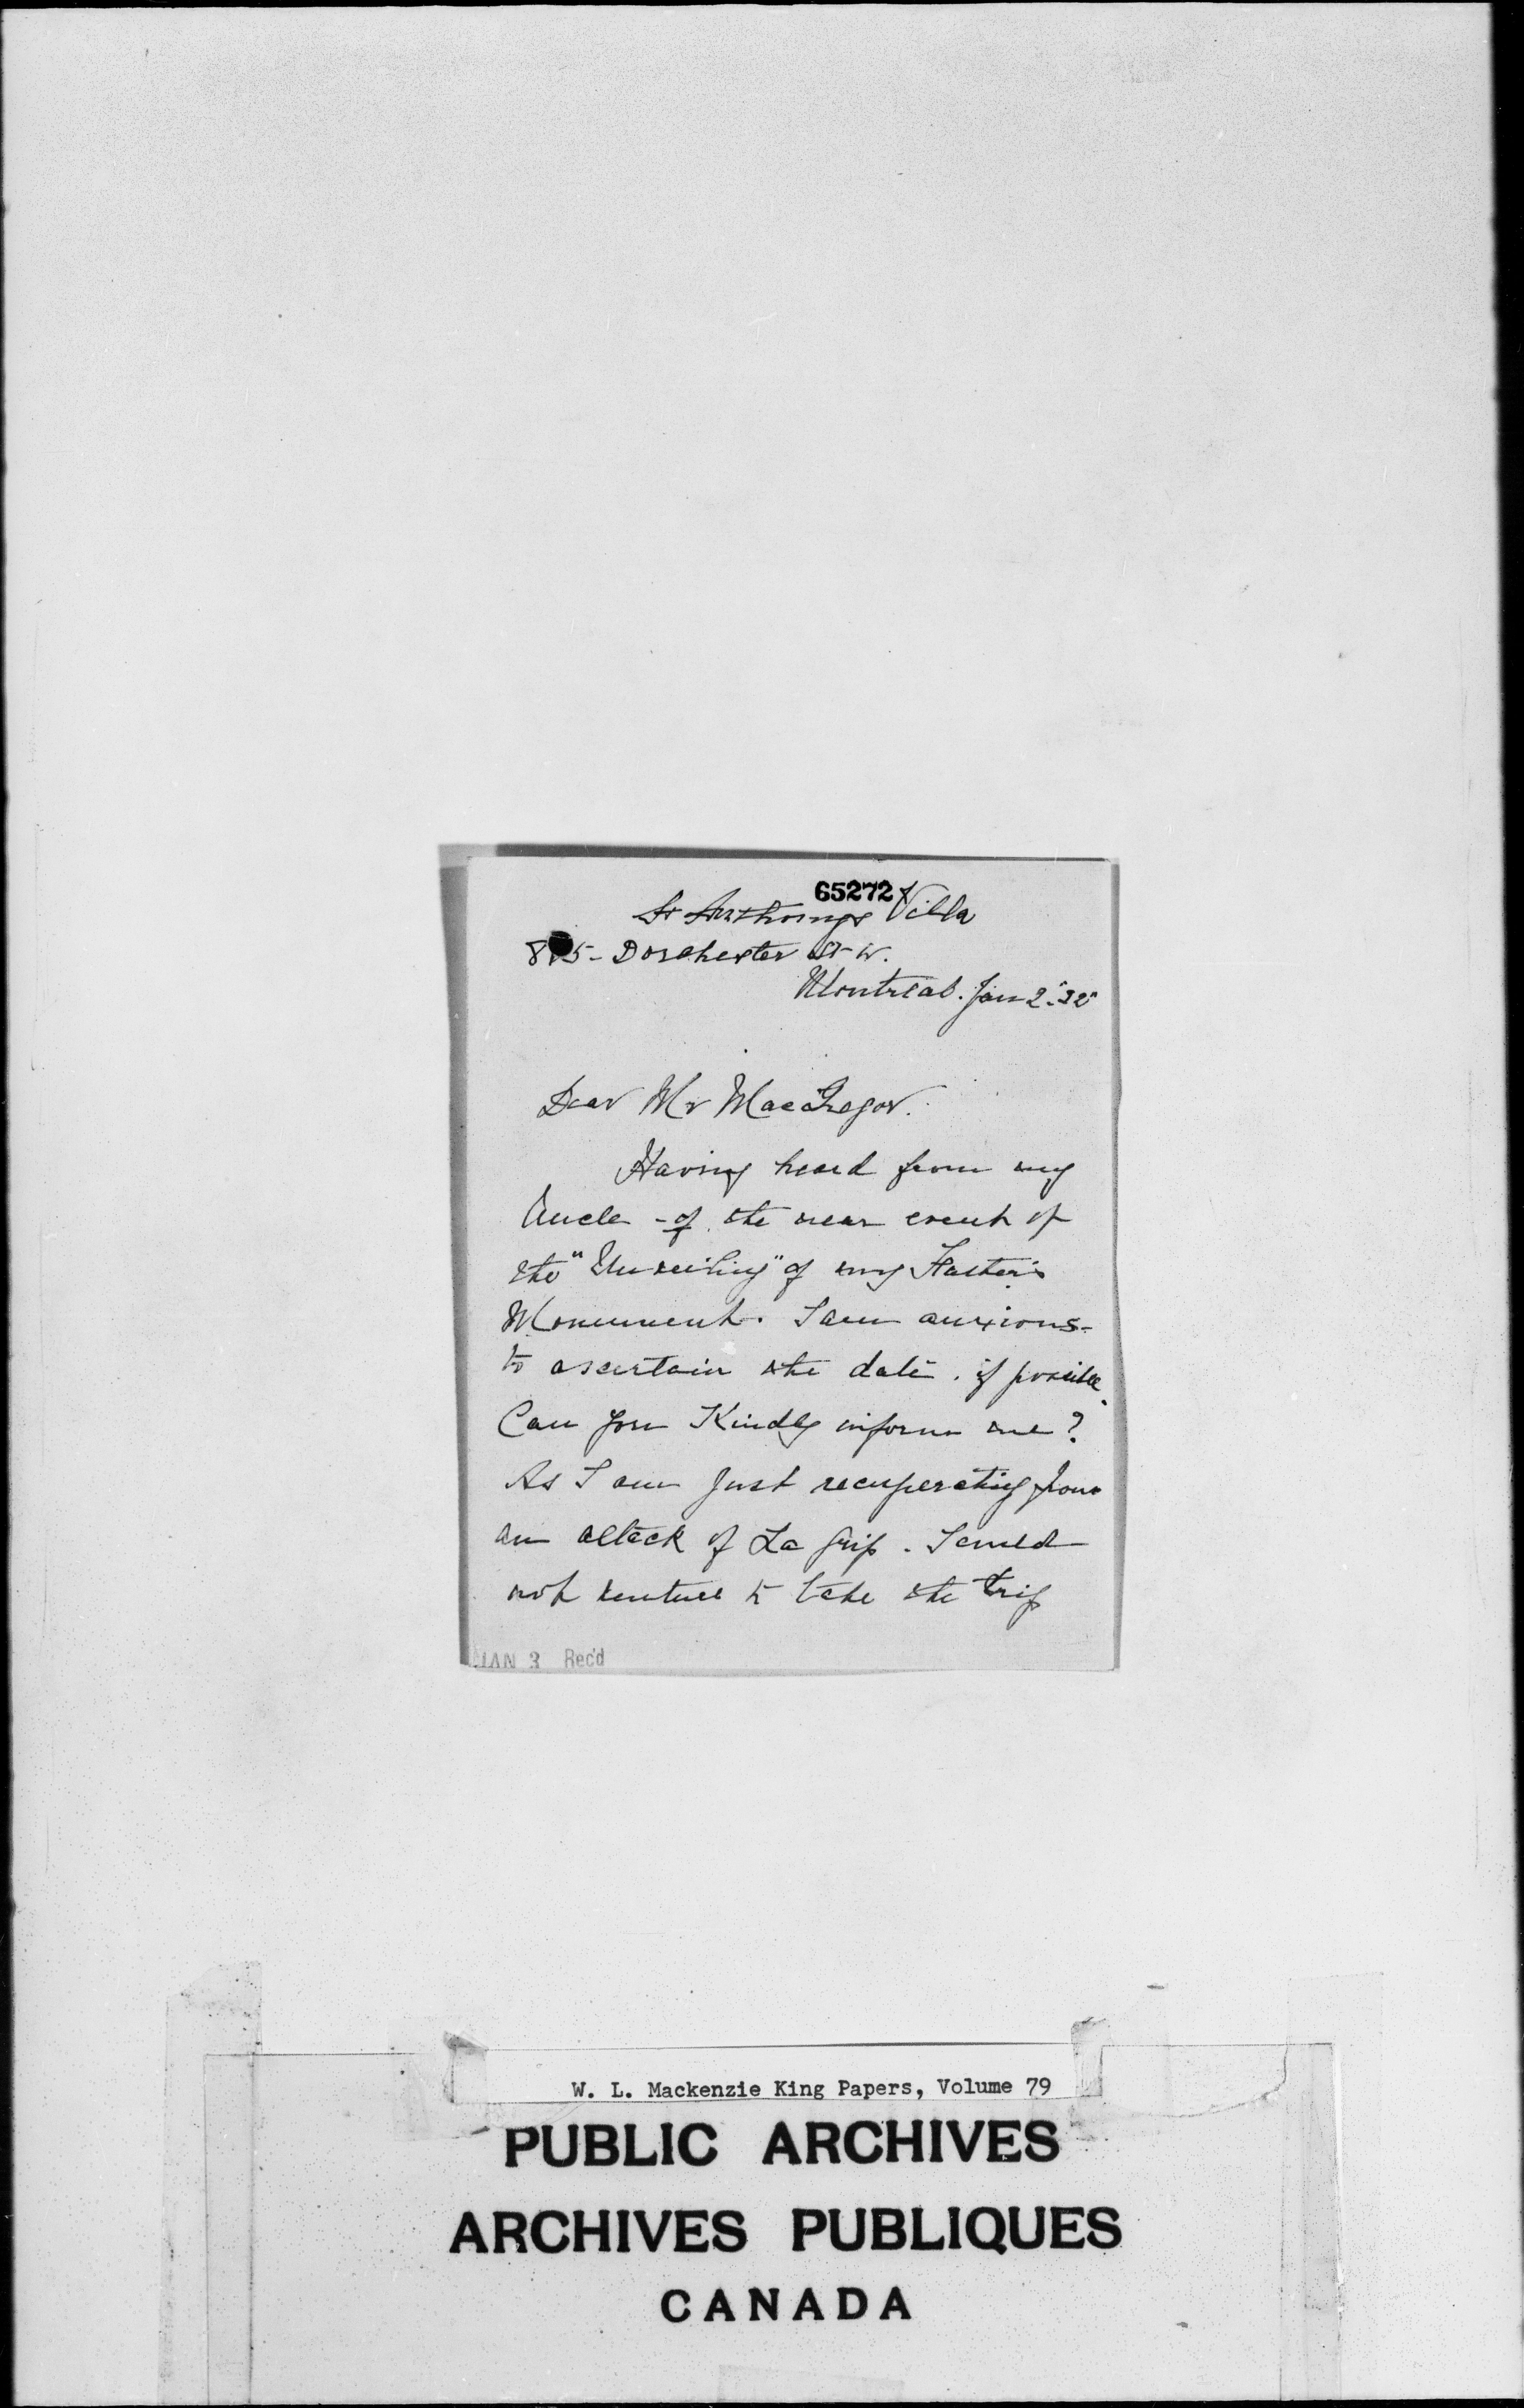 65272
St Anthonys Villa
85- Dorchester St W.
Montreal. Jan 2-"32"
Dear Mr MacGregor.
Having heard from my
Uncle - of the near event of
the "Unveiling" of my Father's
Monument. I am anxious-
to ascertain the date. if possible.
Can you Kindly inform me?
As I am just recuperating from
an attack of La Grip. I could
not venture to take the trip
JAN 3 Rec'd
W. L. Mackenzie King Papers, Volume 79
PUBLIC ARCHIVES
ARCHIVES PUBLIQUES
CANADA